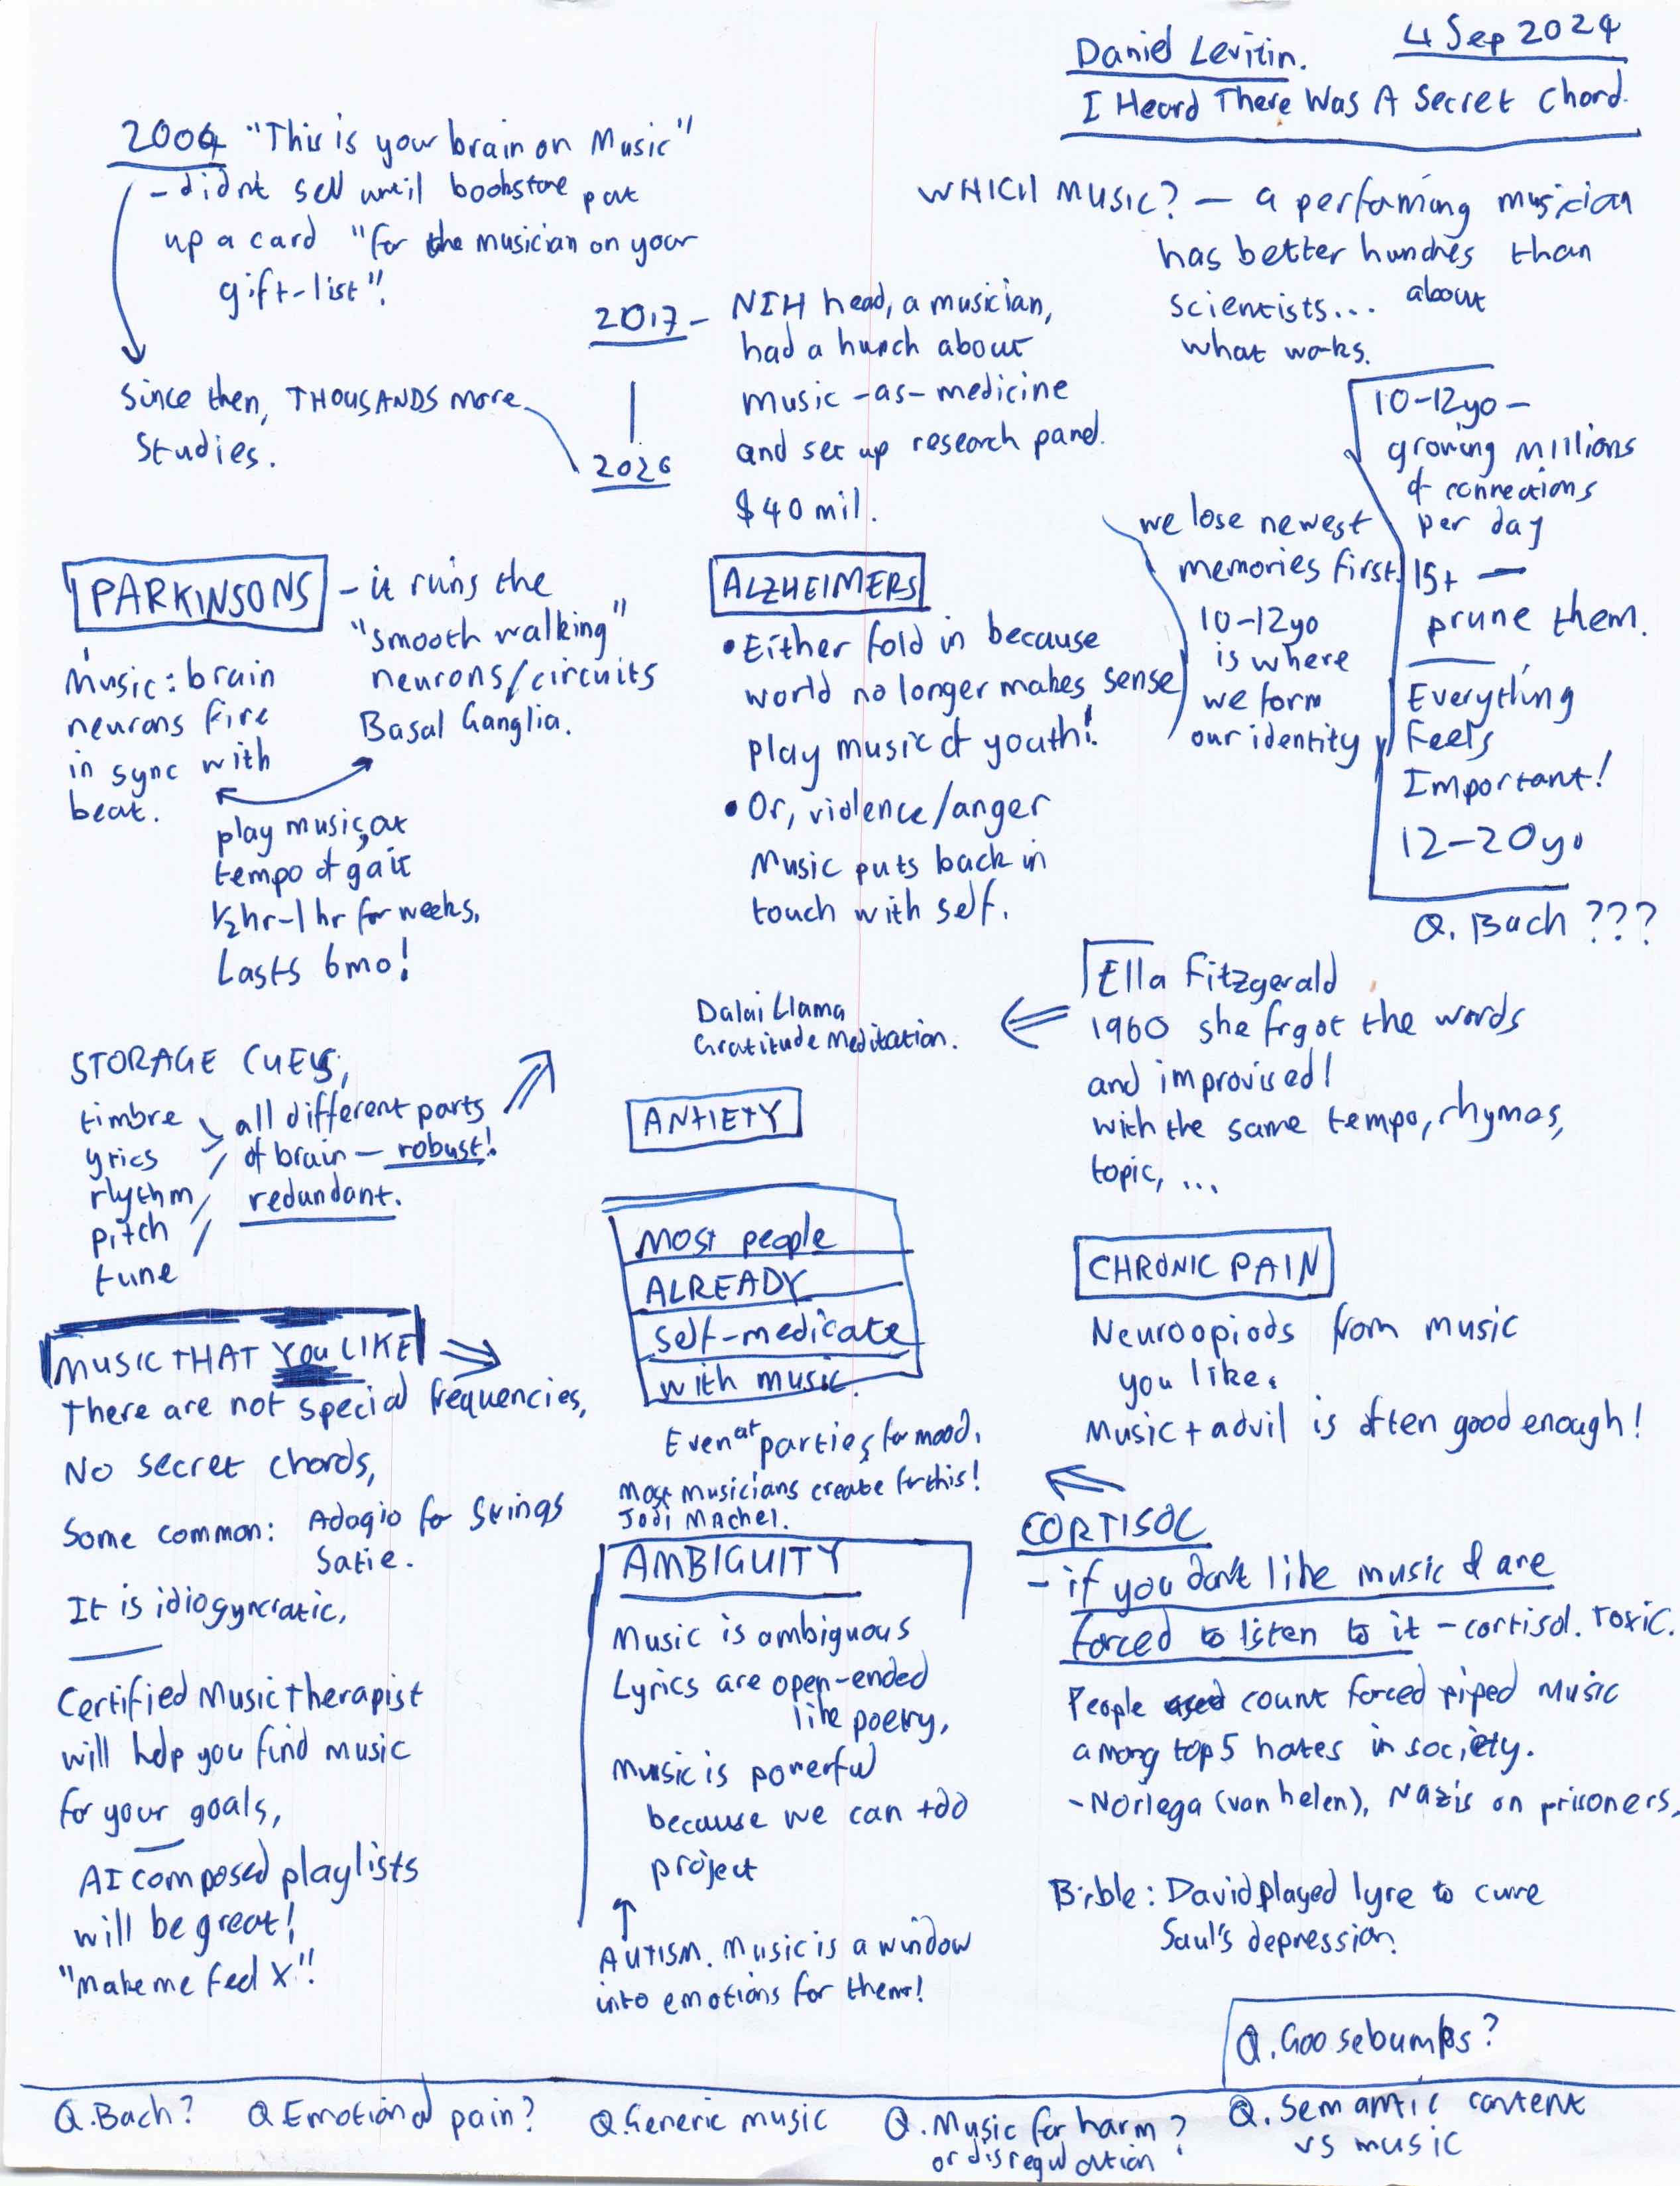 Daniel Levitin. 4 Sep 2024
I Heard There Was A Secret Chord.
2006 "This is your brain on Music"
- didnt sell until bookstore put
up a card "for the musician on your
gift-list".
Since then, THOUSANDS more
studies.
2017 - NIH head, a musician,
had a hunch about
music-as-medicine
and set up research panel.
$40 mil.
2026
WHICH MUSIC? - a performing musician
has better hunches than
scientists... about
what works.
10-12yo -
growing millions
of connections
per day
15+ -
prune them.
Everything
Feels
Important!
12-20yo
Q. Bach ???
we lose newest
memories first.
10-12yo
is where
we form
our identity
PARKINSONS - it ruins the
"smooth walking"
neurons/circuits
Basal Ganglia.
Music: brain
neurons fire
in sync with
beat.
play music at
tempo of gait
½hr-1hr for weeks.
Lasts 6mo!
ALZHEIMERS
• Either fold in because
world no longer makes sense
play music of youth!
• Or, violence/anger
Music puts back in
touch with self.
Ella Fitzgerald
1960 she frgot the words
and improvised!
with the same tempo, rhymes,
topic, ...
Dalai Llama
Gratitude Meditation.
STORAGE CUES;
timbre
yrics
rhythm
pitch
tune
all different parts
of brain - robust!
redundant.
ANXIETY
Most people
ALREADY
self-medicate
with music.
Even at parties for mood.
Most musicians create for this!
Jodi Machel.
CHRONIC PAIN
Neuroopiods from music
you like.
Music + advil is often good enough!
MUSIC THAT YOU LIKE
There are not special frequencies,
No secret chords,
Some common: Adagio for Strings
Satie.
It is idiosyncratic.
Certified Music therapist
will help you find music
for your goals,
AI composed playlists
will be great!
"Make me feel X"!
AMBIGUITY
Music is ambiguous
Lyrics are open-ended
like poetry,
Music is powerful
because we can +do
project
AUTISM. Music is a window
into emotions for them!
CORTISOL
- if you don't like music & are
forced to listen to it - cortisol. toxic.
People count forced piped music
among top 5 hates in society.
- Noriega (van helen), Nazis on prisoners,
Bible: David played lyre to cure
Saul's depression.
Q. Goosebumps?
Q. Bach? Q Emotional pain? Q. Generic music Q. Music for harm?
or disregulation
Q. Semantic content
vs music